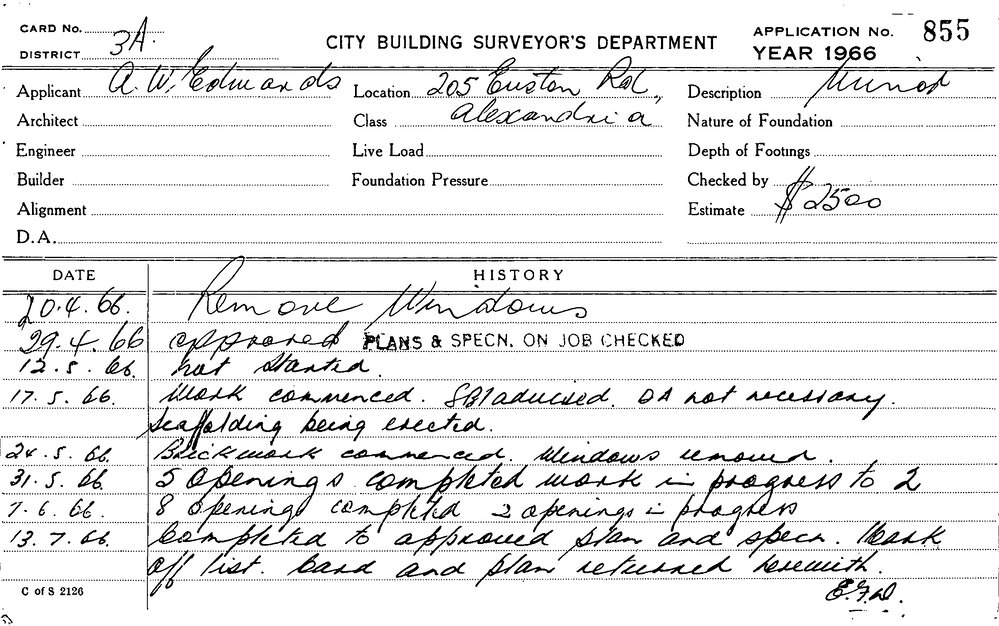 CARD No.
DISTRICT 3A.
CITY BUILDING SURVEYOR'S DEPARTMENT
APPLICATION No. 855
YEAR 1966
Applicant A. W. Edwards Location 205 Euston Rd, Description Minor
Architect Class Alexandria Nature of Foundation
Engineer Live Load Depth of Footings
Builder Foundation Pressure Checked by
Alignment Estimate $2500
D.A.
DATE HISTORY
20.4.66. Remove Windows
29.4.66 approved PLANS & SPECN. ON JOB CHECKED
12.5.66. not started.
17.5.66. Work commenced. SBI advised. DA not necessary.
Scaffolding being erected.
24.5.66. Brickwork commenced. Windows removed.
31.5.66 5 openings completed work in progress to 2
7.6.66. 8 openings completed 2 openings in progress
13.7.66. Completed to approved plan and specn. Mark
off list. Card and plan returned herewith.
C of S 2126